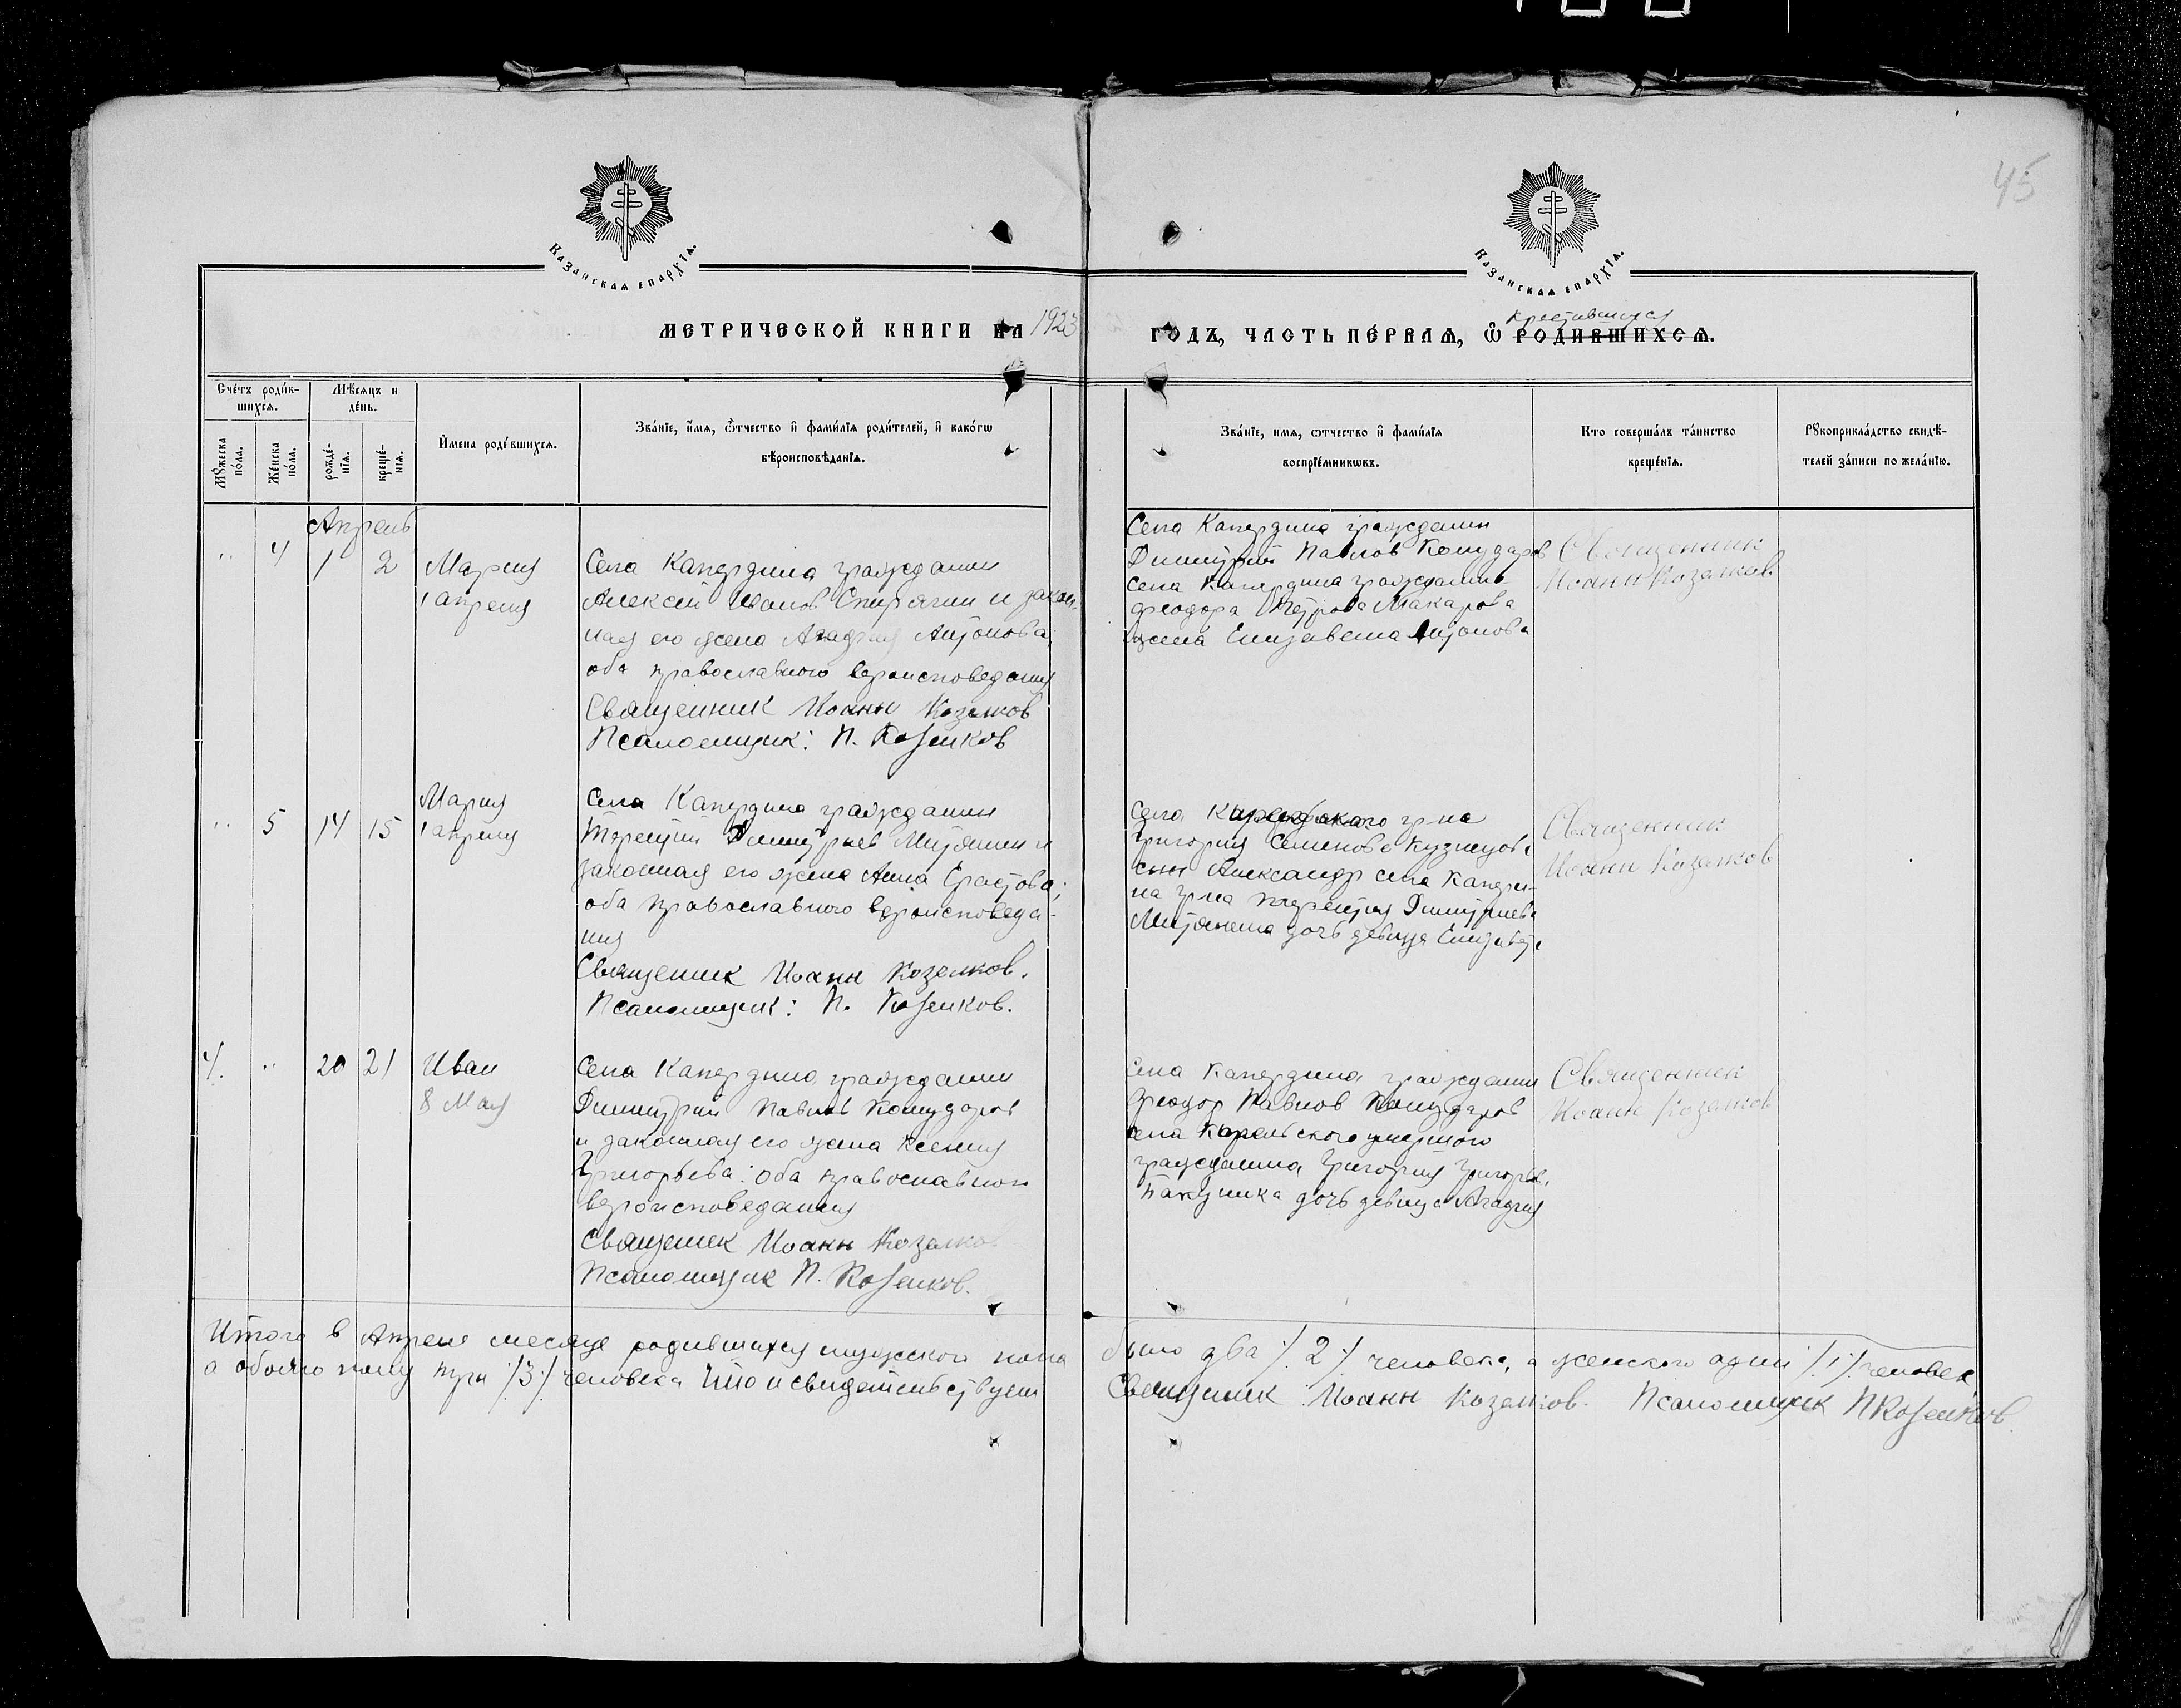 45
Казанскаѧ епархїѧ.
Казанскаѧ епархїѧ.
МЕТРИЧЕСКОЙ КНИГИ НА 1923
крестившихся
ГОДЪ, ЧАСТЬ ПЕ́РВАѦ, Ѡ҆ РОДИВШИХСѦ.
Сче́тъ роди́в-
шихсѧ.
Мѣ́сѧцъ и
де́нь.
Мꙋ́жеска
по́ла.
Же́нска
по́ла.
рожде́-
нїѧ.
креще́-
нїѧ.
И҆мена роди́вшихсѧ.
Зва́нїе, и҆́мѧ, ѻ҆́тчество и҆ фами́лїѧ роди́телей, и҆ како́гѡ
вѣроисповѣ́данїѧ.
Зва́нїе, имѧ, ѻтчество и҆ фами́лїѧ
воспрїе́мникѡвъ.
Кто соверша́лъ та́инство
креще́нїѧ.
Рꙋкоприкла́дство свидѣ́-
телей за́писи по жела́нїю.
Апрель
" 4 1 2 Мария
1 апреля
Села Капердина гражданин
Алексей Иванов Спирягин и закон
ная его жена Агафия Антонова;
оба православного вероисповедания
Священник Иоанн Козелков
Псаломщик: П. Козелков
Села Капердина гражданин
Димитрий Павлов
Села Капердина гражданина
Феодора Петрова Макарова
жена Елизавета Антонова
Священник
Иоанн Козелков
" 5 14 15 Мария
1 апреля
Села Капердина гражданин
Терентий Димитриев Митянин и
законная его жена Анна Ерастова;
оба православного вероисповеда-
ния
Священник Иоанн Козелков.
Псаломщик: П. Козелков.
Села гр-на
Григория Семенова Кузнецова
сын Александр села Каперди-
на гр-на Терентия Димитриева
Митянина дочь девица Елизавета
Священник
Иоанн Козелков
4. " 20 21 Иван
8 Мая
Села Капердина гражданин
Димитрий Павлов
и законная его жена Ксения
Григорьева: оба православного
вероисповедания
Священник Иоанн Козелков
Псаломщик П. Козелков.
Села Капердина гражданин
Феодор Павлов
села Карельского умершого
гражданина Григория Григорьев.
дочь девица Агафия
Священник
Иоанн Козелков
Итого в Апреле месяце родившихся мужеского пола было два /. 2 ./ человека, а женского один /. 1 ./ человек,
а обоего полу три /. 3 ./ человека Что и свидетельствуем Священник Иоанн Козелков. Псаломщик П Козелков.